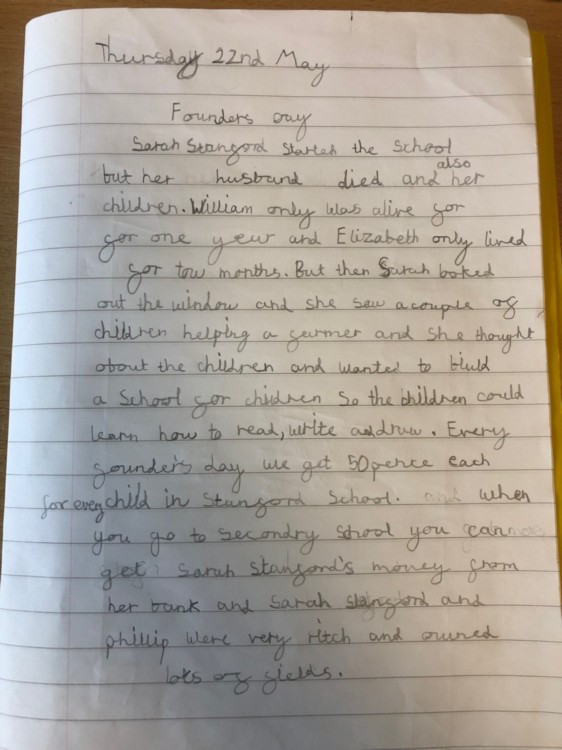 Thursday 22nd May
Founders Day
Sarah Stanford started the School
but her husband died and also her
children. William only was alive for
for one year and Elizabeth only lived
for tow months. But then Sarah looked
out the window and she saw a couple of
children helping a farmer and she thought
about the children and wanted to biuld
a School for children So the children could
learn how to read, write and draw. Every
founder's day we get 50pence each
for every child in Stanford School. and when
you go to secondry school you can
get Sarah Stanford's money from
her bank and Sarah Stanford and
phillip were very ritch and owned
lots of fields.